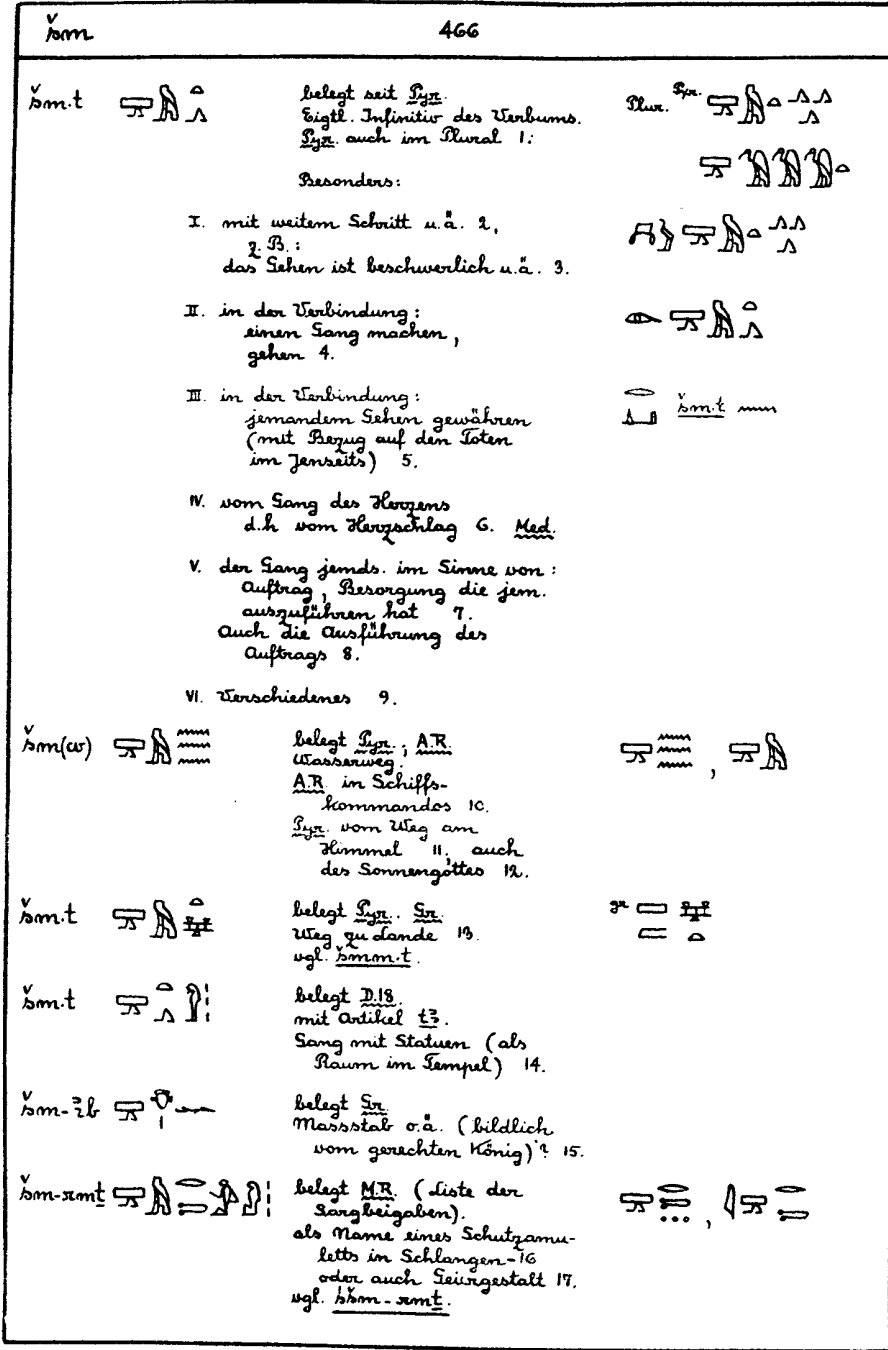 šm 466
šm.t belegt seit Pyr.
Eigtl. Infinitiv des Verbums.
Pyr. auch im Plural 1: Plur. Pyr.
Besonders:
I. mit weitem Schritt u.ä. 2,
z.B.:
das Gehen ist beschwerlich u.ä. 3.
II. in der Verbindung:
einen Gang machen,
gehen 4.
III. in der Verbindung:
jemandem Gehen gewähren šm.t
(mit Bezug auf den Toten
im Jenseits) 5.
IV. vom Gang des Herzens
d.h vom Herzschlag 6. Med.
V. der Gang jemds. im Sinne von:
Auftrag, Besorgung die jem.
auszuführen hat 7.
Auch die Ausführung des
Auftrags 8.
VI. Verschiedenes 9.
šm(w) belegt Pyr.; A.R.
Wasserweg.
A.R. in Schiffs-
kommandos 10.
Pyr. vom Weg am
Himmel 11, auch
des Sonnengottes 12.
šm.t belegt Pyr.. Gr. gr
Weg zu Lande 13.
vgl. šmm.t.
šm.t belegt D.18.
mit Artikel tꜣ.
Gang mit Statuen (als
Raum im Tempel) 14.
šm-ꜣib belegt Gr.
Massstab o.ä. (bildlich
vom gerechten König)? 15.
šm-rmṯ belegt M.R. (Liste der
Sargbeigaben).
als Name eines Schutzamu-
letts in Schlangen-16
oder auch Geiergestalt 17.
vgl. sšm-rmṯ.